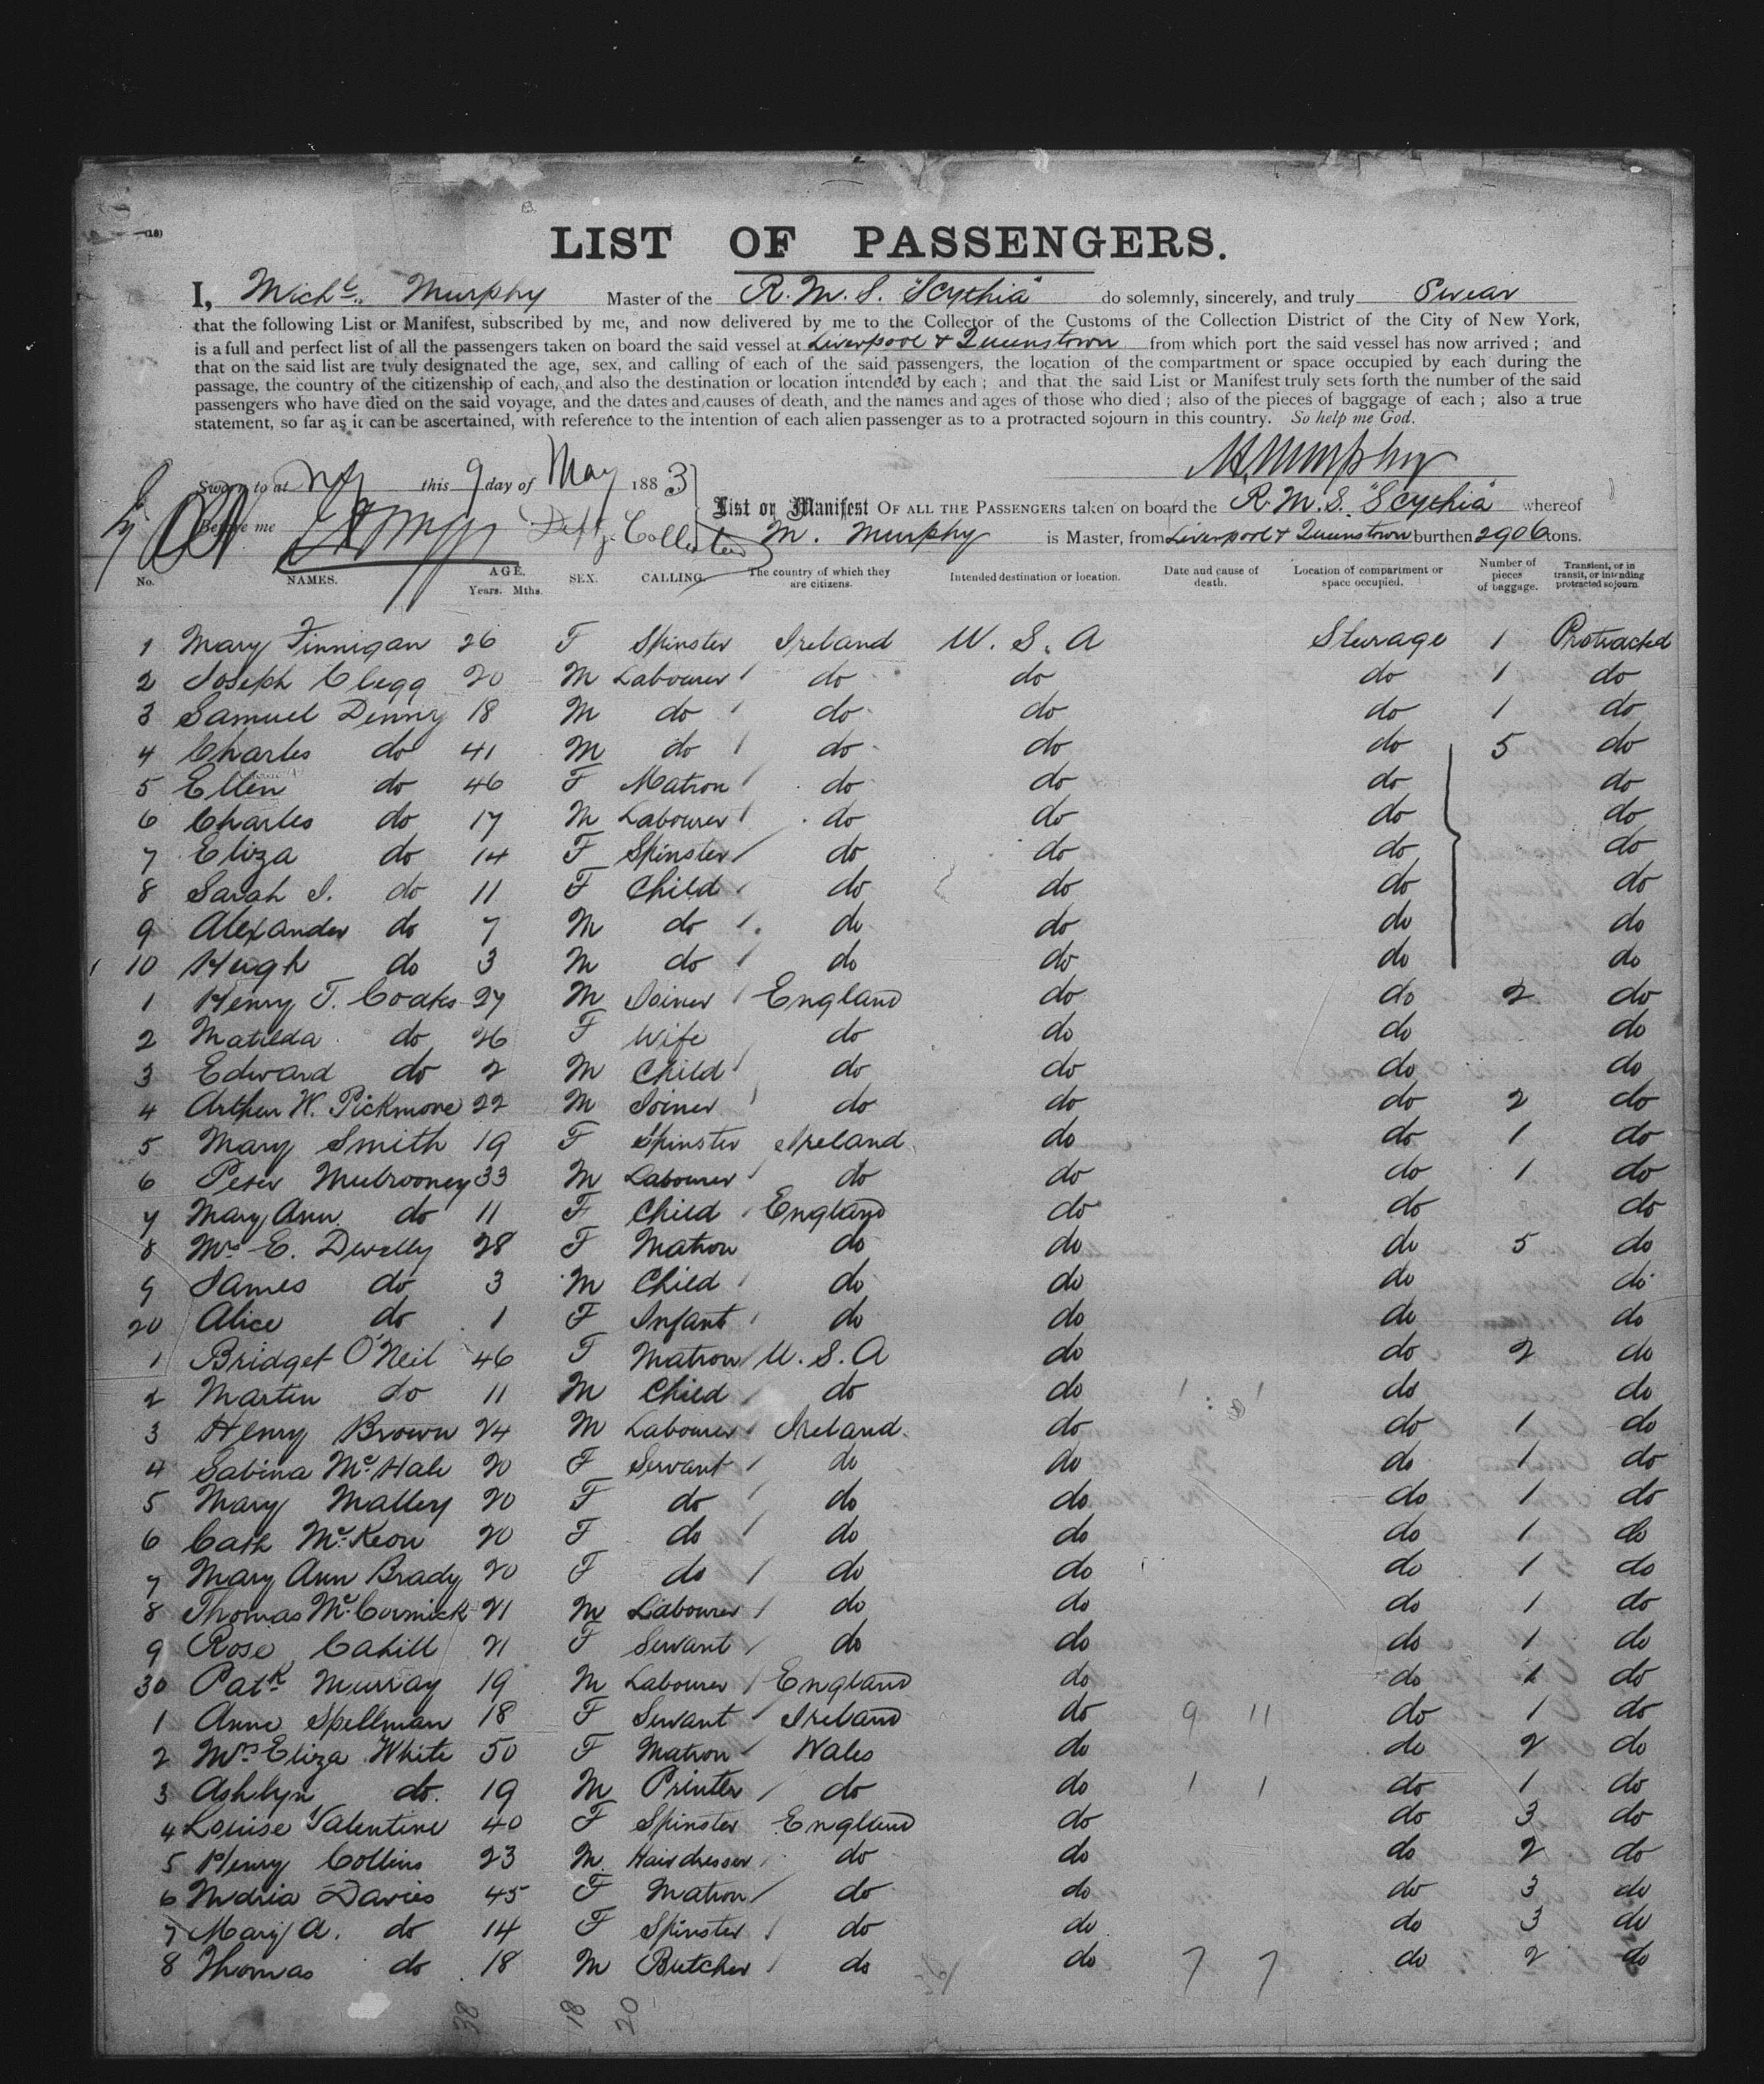 (18)
LIST OF PASSENGERS.
I, Michl. Murphy Master of the R.M.S. "Scythia" do solemnly, sincerely, and truly Swear
that the following List or Manifest, subscribed by me, and now delivered by me to the Collector of the Customs of the Collection District of the City of New York,
is a full and perfect list of all the passengers taken on board the said vessel at Liverpool & Queenstown from which port the said vessel has now arrived ; and
that on the said list are truly designated the age, sex, and calling of each of the said passengers, the location of the compartment or space occupied by each during the
passage, the country of the citizenship of each, and also the destination or location intended by each ; and that the said List or Manifest truly sets forth the number of the said
passengers who have died on the said voyage, and the dates and causes of death, and the names and ages of those who died ; also of the pieces of baggage of each ; also a true
statement, so far as it can be ascertained, with reference to the intention of each alien passenger as to a protracted sojourn in this country. So help me God.
M. Murphy
Sworn to at NY this 9 day of May 1883
Before me Depy. Collector
List or Manifest OF ALL THE PASSENGERS taken on board the R.M.S. "Scythia" whereof
M. Murphy is Master, from Liverpool & Queenstown burthen 2906 tons.
No. NAMES. AGE. Years. Mths. SEX. CALLING. The country of which they are citizens. Intended destination or location. Date and cause of death. Location of compartment or space occupied. Number of pieces of baggage. Transient, or in transit, or intending protracted sojourn
1 Mary Finnigan 26 F Spinster Ireland U. S. A Steerage 1 Protracted
2 Joseph Clegg 20 M Labourer do do do 1 do
3 Samuel Denny 18 M do do do do 1 do
4 Charles do 41 M do do do do 5 do
5 Ellen do 46 F Matron do do do do
6 Charles do 17 M Labourer do do do do
7 Eliza do 14 F Spinster do do do do
8 Sarah J. do 11 F Child do do do do
9 Alexander do 7 M do do do do do
10 Hugh do 3 M do do do do do
1 Henry T. Coaks 27 M Joiner England do do 2 do
2 Matilda do 26 F Wife do do do do
3 Edward do 2 M Child do do do do
4 Arthur W. Pickmore 22 M Joiner do do do 2 do
5 Mary Smith 19 F Spinster Ireland do do 1 do
6 Peter Mulrooney 33 M Labourer do do do 1 do
7 Mary Ann do 11 F Child England do do do
8 Mrs E. Dwelly 28 F Matron do do do 5 do
9 James do 3 M Child do do do do
20 Alice do 1 F Infant do do do do
1 Bridget O'Neil 46 F Matron U. S. A do do 2 do
2 Martin do 11 M Child do do do do
3 Henry Brown 24 M Labourer Ireland do do 1 do
4 Sabina McHale 20 F Servant do do do 1 do
5 Mary Malley 20 F do do do do 1 do
6 Cath McKeon 20 F do do do do 1 do
7 Mary Ann Brady 20 F do do do do 1 do
8 Thomas McCormick 21 M Labourer do do do 1 do
9 Rose Cahill 21 F Servant do do do 1 do
30 Patk Murray 19 M Labourer England do do 1 do
1 Anne Spellman 18 F Servant Ireland do 9 11 do 1 do
2 Mrs Eliza White 50 F Matron Wales do do 2 do
3 Ashlyn do. 19 M Printer do do 1 1 do 1 do
4 Louise Valentine 40 F Spinster England do do 3 do
5 Henry Collins 23 M Hairdresser do do do 2 do
6 Maria Davies 45 F Matron do do do 3 do
7 Mary A. do 14 F Spinster do do do 3 do
8 Thomas do 18 M Butcher do do 7 7 do 2 do
38 18 20